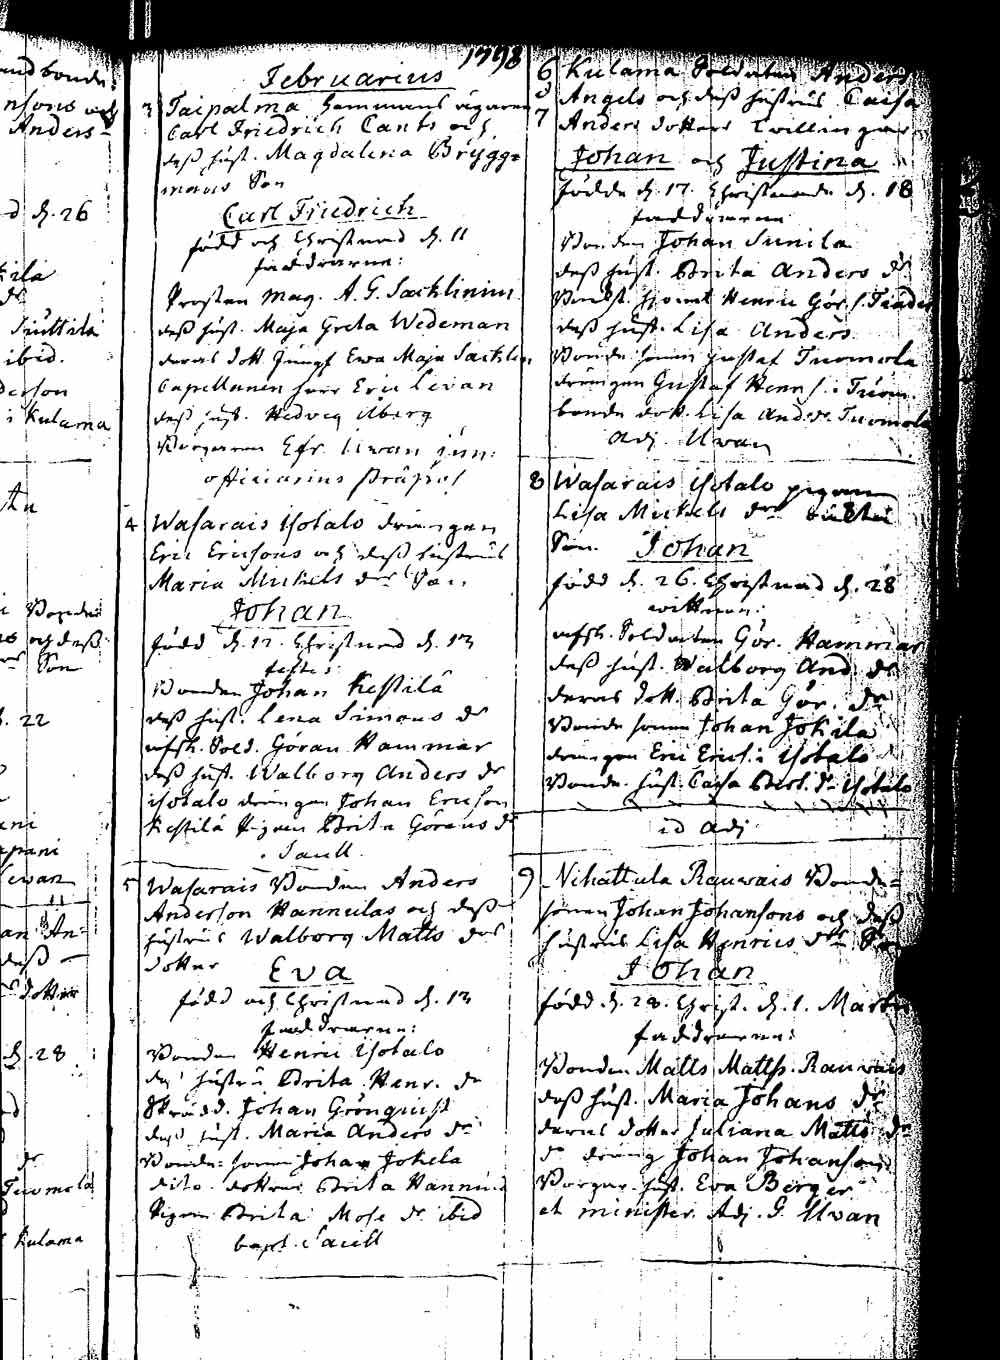 and bonde
nsons och
Anders-
d d. 26
kila
dr
Suttila
ibid.
derson
i Kulama
Bonde
och deß
Son
d. 22
pani
Lewan
an An-
deß
dotter
d. 28
dr
Tuomola
Kulama
1798
Februarius
3 Taipalma hemmans ägaren
Carl Friedrich Cants och
deß hust. Magdalena Brygg=
mans Son
Carl Friedrich
född och Christnad d. 11
faddrarne:
Prosten Mag. A. G. Sacklinius
deß hust. Maja Greta Wedeman
deras dott. Jungf. Ewa Maja Sacklin
Capellanen herr Eric Levan
deß hust. Hedvig Ulberg
Borgaren Efr. Uwan jun:
officiarius Præpos.
4 Wasarais Ysotalo drängen
Eric Ericsons och deß hustrus
Maria Michels dr Son
Johan
född d. 12. Christnad d. 13
testes:
Bonden Johan Kestilä
deß hust. Lena Simons dr
afsk. Sold. Göran Hammar
deß hust. Walborg Anders dr
Ysotalo drängen Johan Ericson
Kestilä Pigan Brita Görans dr
Saull.
5 Wasarais Bonden Anders
Anderson Hannulas och deß
hustrus Walborg Matts drs
dotter Eva
född och Christnad d. 13
faddrarne:
Bonden Henric Ysotalo
deß hustru Brita Henr. dr
Skrädd. Johan Grönquist
deß hust. Maria Anders dr
Bonde-sonen Johan Jokela
dito dottren Brita Hannu
Pigan Brita Mose dr ibid
bapt. Saull
6 Kulama Soldaten Anders
&
7 Angels och deß hustrus Caisa
Anders dotters twillingar
Johan och Justina
födde d. 17. Christnade d. 18
faddrarne
Bonden Johan Sunila
deß hust. Brita Anders dr
deß hust. Lisa Anders
Bonde sonen Gustaf Tuomola
drängen Gustaf Henr. s. i Tuom.
bonde dott. Lisa And. dr Tuomola
Adj. Uwan
8 Wasarais Ysotalo pigan
Lisa Michels drs
Son. Johan
född d. 26. Christnad d. 28
wittnen:
afsk. Soldaten Gör. Hammar
deß hust. Walborg And. dr
deras dott. Brita Gör. dr
Bonde sonen Johan Jokila
drängen Eric Erics. i Ysotalo
Bonde hust. Caisa Bert. dr Ysotalo
id Adj.
9 Nihattula Rauwais Bonde=
sonen Johan Johansons och deß
hustrus Lisa Henrics drs Son
Johan
född d. 28. Christ. d. 1. Martii
faddrarne:
Bonden Matts Matts. Rauwais
deß hust. Maria Johans dr
deras dotter Juliana Matts dr
dräng Johan Johanson
Borgar. hust. Eva Berger
et minister Adj. G. Uwan